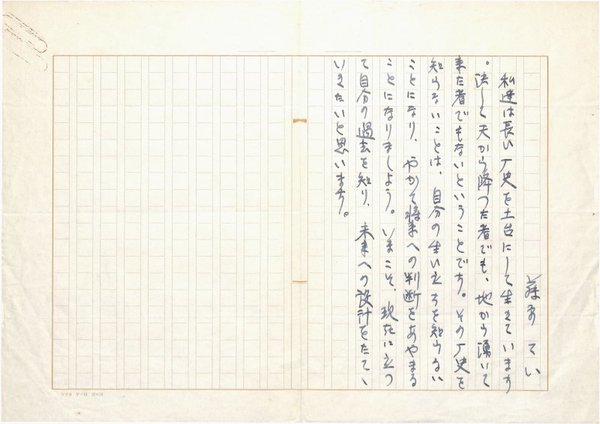 藤森てい
私達は長い厂史を土台にして生きています
。決して天から降った者でも、地から湧いて
来た者でもないということです。その厂史を
知らないことは、自分の生い立ちを知らない
ことになり、やがて将来への判断をあやまる
ことになりましょう。いまこそ、現在に立っ
て自分の過去を知り、来来への設計をたて、
いきたいと思います。